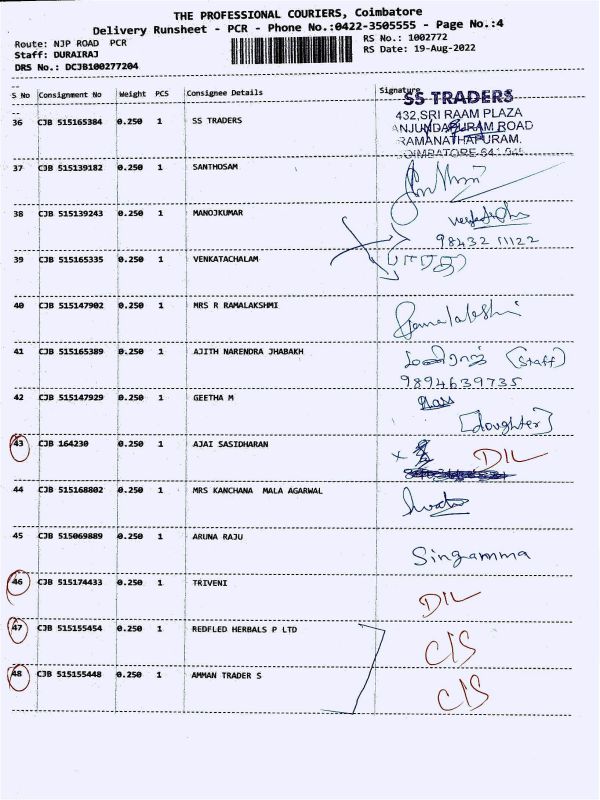 THE PROFESSIONAL COURIERS, Coimbatore
Delivery Runsheet - PCR - Phone No.:0422-3505555 - Page No.:4
Route: NJP ROAD PCR
RS No.: 1002772
Staff: DURAIRAJ
RS Date: 19-Aug-2022
DRS No.: DCJB100277204
S No Consignment No Weight PCS Consignee Details Signature
36 CJB 515165384 0.250 1 SS TRADERS
SS TRADERS
432,SRI RAAM PLAZA
ANJUNDAPURAM ROAD
RAMANATHAPURAM.
37 CJB 515139182 0.250 1 SANTHOSAM
38 CJB 515139243 0.250 1 MANOJKUMAR
98432 11122
39 CJB 515165335 0.250 1 VENKATACHALAM
40 CJB 515147902 0.250 1 MRS R RAMALAKSHMI
Ramalakshmi
41 CJB 515165389 0.250 1 AJITH NARENDRA JHABAKH
(Staff)
9894639735
42 CJB 515147929 0.250 1 GEETHA M
[daughter]
43 CJB 164230 0.250 1 AJAI SASIDHARAN
x DIL
44 CJB 515168802 0.250 1 MRS KANCHANA MALA AGARWAL
45 CJB 515069889 0.250 1 ARUNA RAJU
Singamma
46 CJB 515174433 0.250 1 TRIVENI
DIL
47 CJB 515155454 0.250 1 REDFLED HERBALS P LTD
C/S
48 CJB 515155448 0.250 1 AMMAN TRADER S
C/S